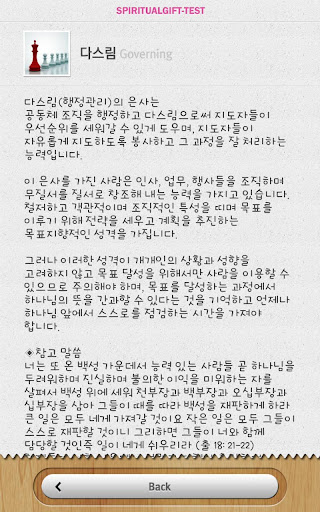 SPIRITUALGIFT-TEST
다스림 Governing
다스림(행정관리)의 은사는
공동체 조직을 행정하고 다스림으로써 지도자들이
우선순위를 세워갈 수 있게 도우며, 지도자들이
자유롭게 지도하도록 봉사하고 그 과정을 잘 처리하는
능력입니다.
이 은사를 가진 사람은 인사, 업무, 행사들을 조직하며
무질서를 질서로 창조해 내는 능력을 가지고 있습니다.
철저하고 객관적이며 조직적인 특성을 띠며 목표를
이루기 위해 전략을 세우고 계획을 추진하는
목표지향적인 성격을 가집니다.
그러나 이러한 성격이 개개인의 상황과 성향을
고려하지 않고 목표 달성을 위해서만 사람을 이용할 수
있으므로 주의해야 하며, 목표를 달성하는 과정에서
하나님의 뜻을 간과할 수 있다는 것을 기억하고 언제나
하나님 앞에서 스스로를 점검하는 시간을 가져야
합니다.
◈참고 말씀
너는 또 온 백성 가운데서 능력 있는 사람들 곧 하나님을
두려워하며 진실하며 불의한 이익을 미워하는 자를
살펴서 백성 위에 세워 천부장과 백부장과 오십부장과
십부장을 삼아 그들이 때를 따라 백성을 재판하게 하라
큰 일은 모두 네게 가져갈 것이요 작은 일은 모두 그들이
스스로 재판할 것이니 그리하면 그들이 너와 함께
담당할 것인즉 일이 네게 쉬우리라 (출 18:21-22)
Back